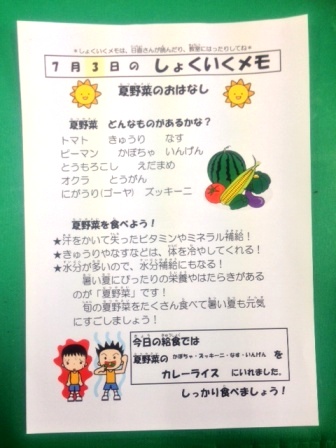 ＊しょくいくメモは、日直さんが読んだり、教室にはったりしてね＊
7月3日の しょくいくメモ
夏野菜のおはなし
夏野菜 どんなものがあるかな？
トマト きゅうり なす
ピーマン かぼちゃ いんげん
とうもろこし えだまめ
オクラ とうがん
にがうり(ゴーヤ) ズッキーニ
夏野菜を食べよう！
★汗をかいて失ったビタミンやミネラル補給！
★きゅうりやなすなどは、体を冷やしてくれる！
★水分が多いので、水分補給にもなる！
暑い夏にぴったりの栄養やはたらきがある
のが「夏野菜」です！
旬の夏野菜をたくさん食べて暑い夏も元気
にすごしましょう！
今日の給食では
夏野菜の かぼちゃ・ズッキーニ・なす・いんげん を
カレーライス にいれました。
しっかり食べましょう！